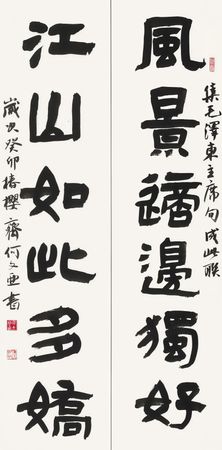 集毛澤東主席句成此聯
風景這邊獨好
江山如此多嬌
歲次癸卯椿櫻齋何書